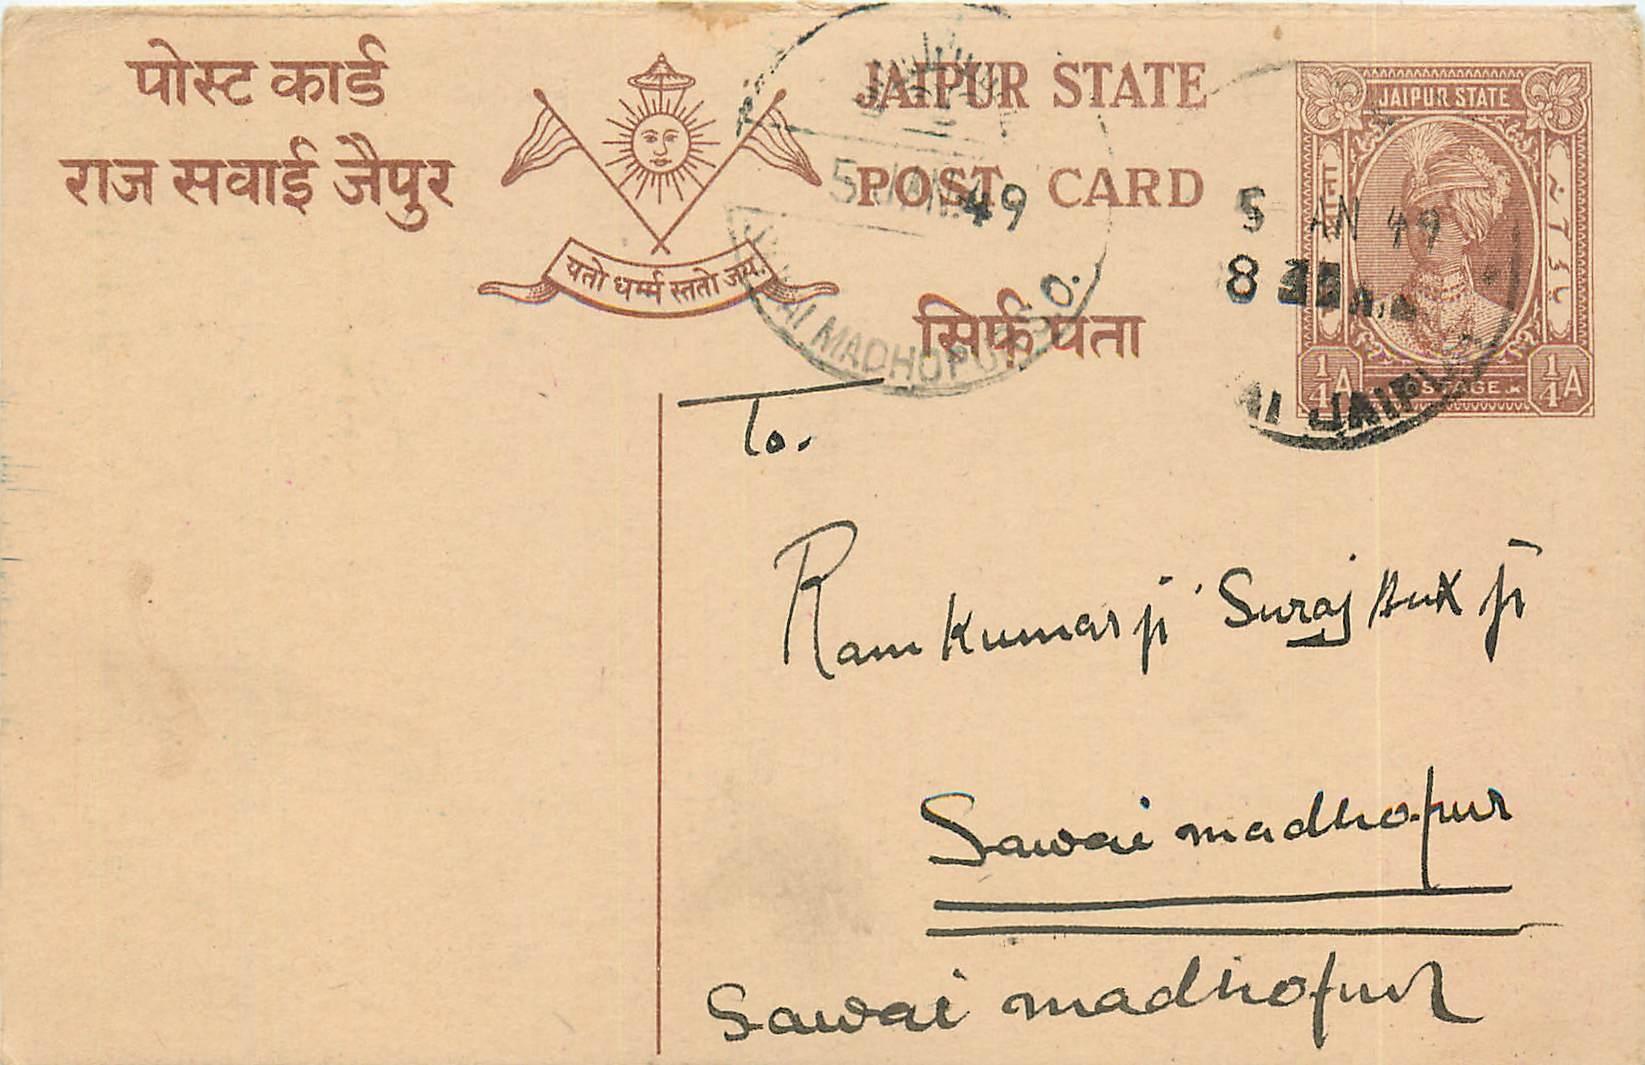 पोस्ट कार्ड
राज सवाई जैपुर
यतो धर्म्म स्ततो जय.
JAIPUR STATE
POST CARD
सिर्फ़ पता
JAIPUR STATE
¼A POSTAGE ¼A
5 JAN 49
MADHOPUR S.O.
5 JAN 49
8
JAIPUR
To.
Ram Kumar ji Suraj Bux ji
Sawai madhopur
Sawai madhopur